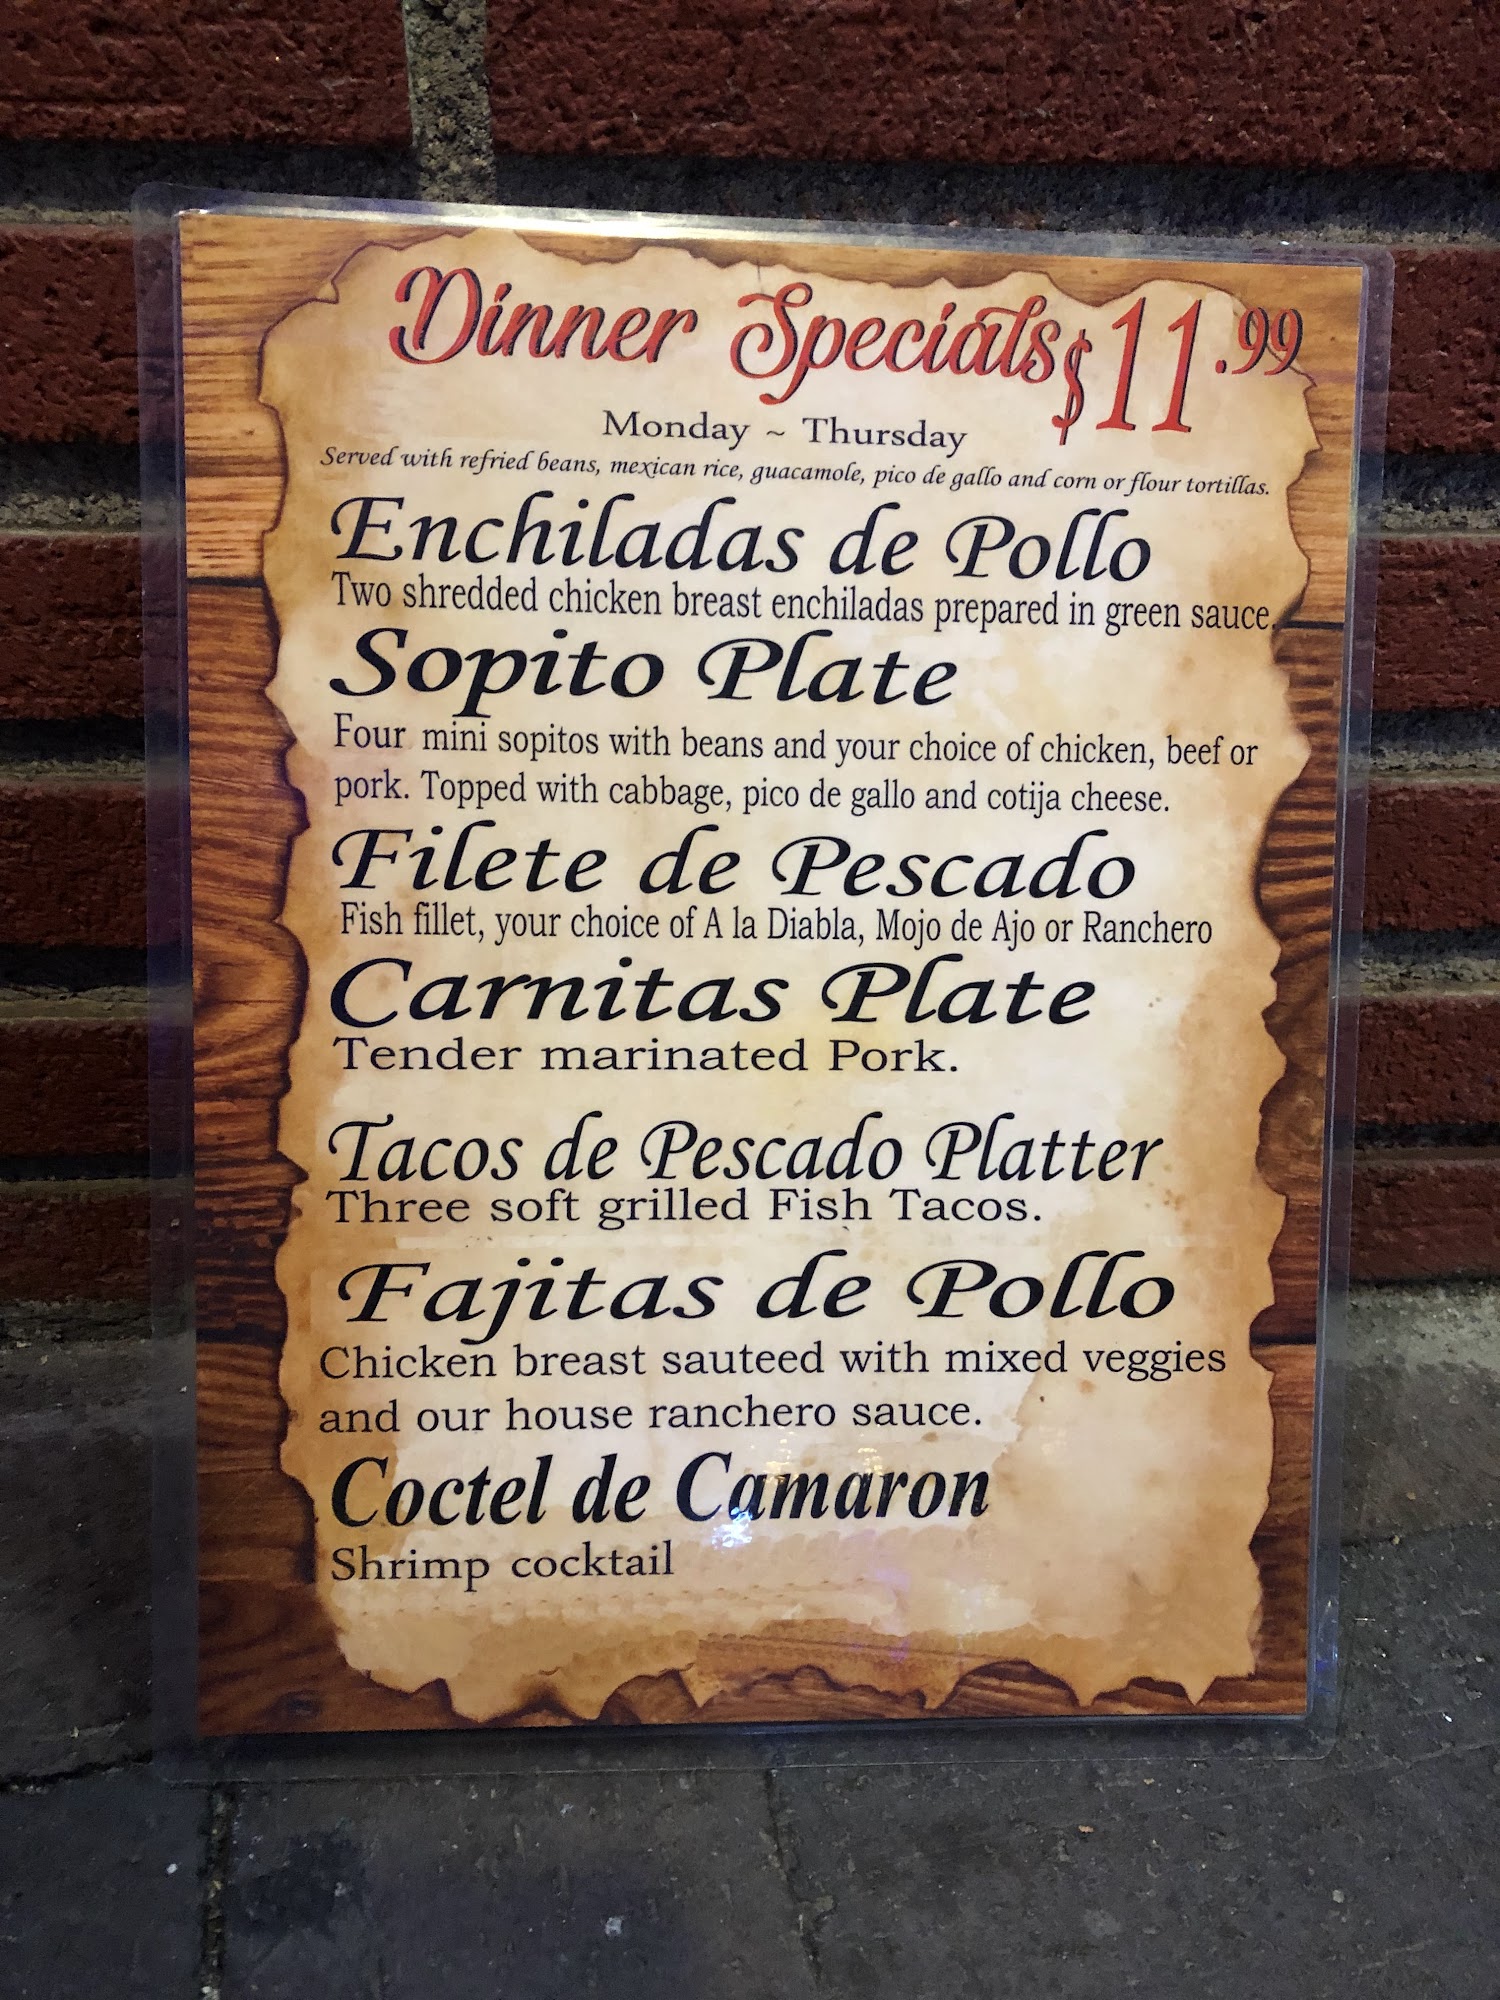 Dinner Specials $11.99
Monday ~ Thursday
Served with refried beans, mexican rice, guacamole, pico de gallo and corn or flour tortillas.
Enchiladas de Pollo
Two shredded chicken breast enchiladas prepared in green sauce.
Sopito Plate
Four mini sopitos with beans and your choice of chicken, beef or
pork. Topped with cabbage, pico de gallo and cotija cheese.
Filete de Pescado
Fish fillet, your choice of A la Diabla, Mojo de Ajo or Ranchero
Carnitas Plate
Tender marinated Pork.
Tacos de Pescado Platter
Three soft grilled Fish Tacos.
Fajitas de Pollo
Chicken breast sauteed with mixed veggies
and our house ranchero sauce.
Coctel de Camaron
Shrimp cocktail